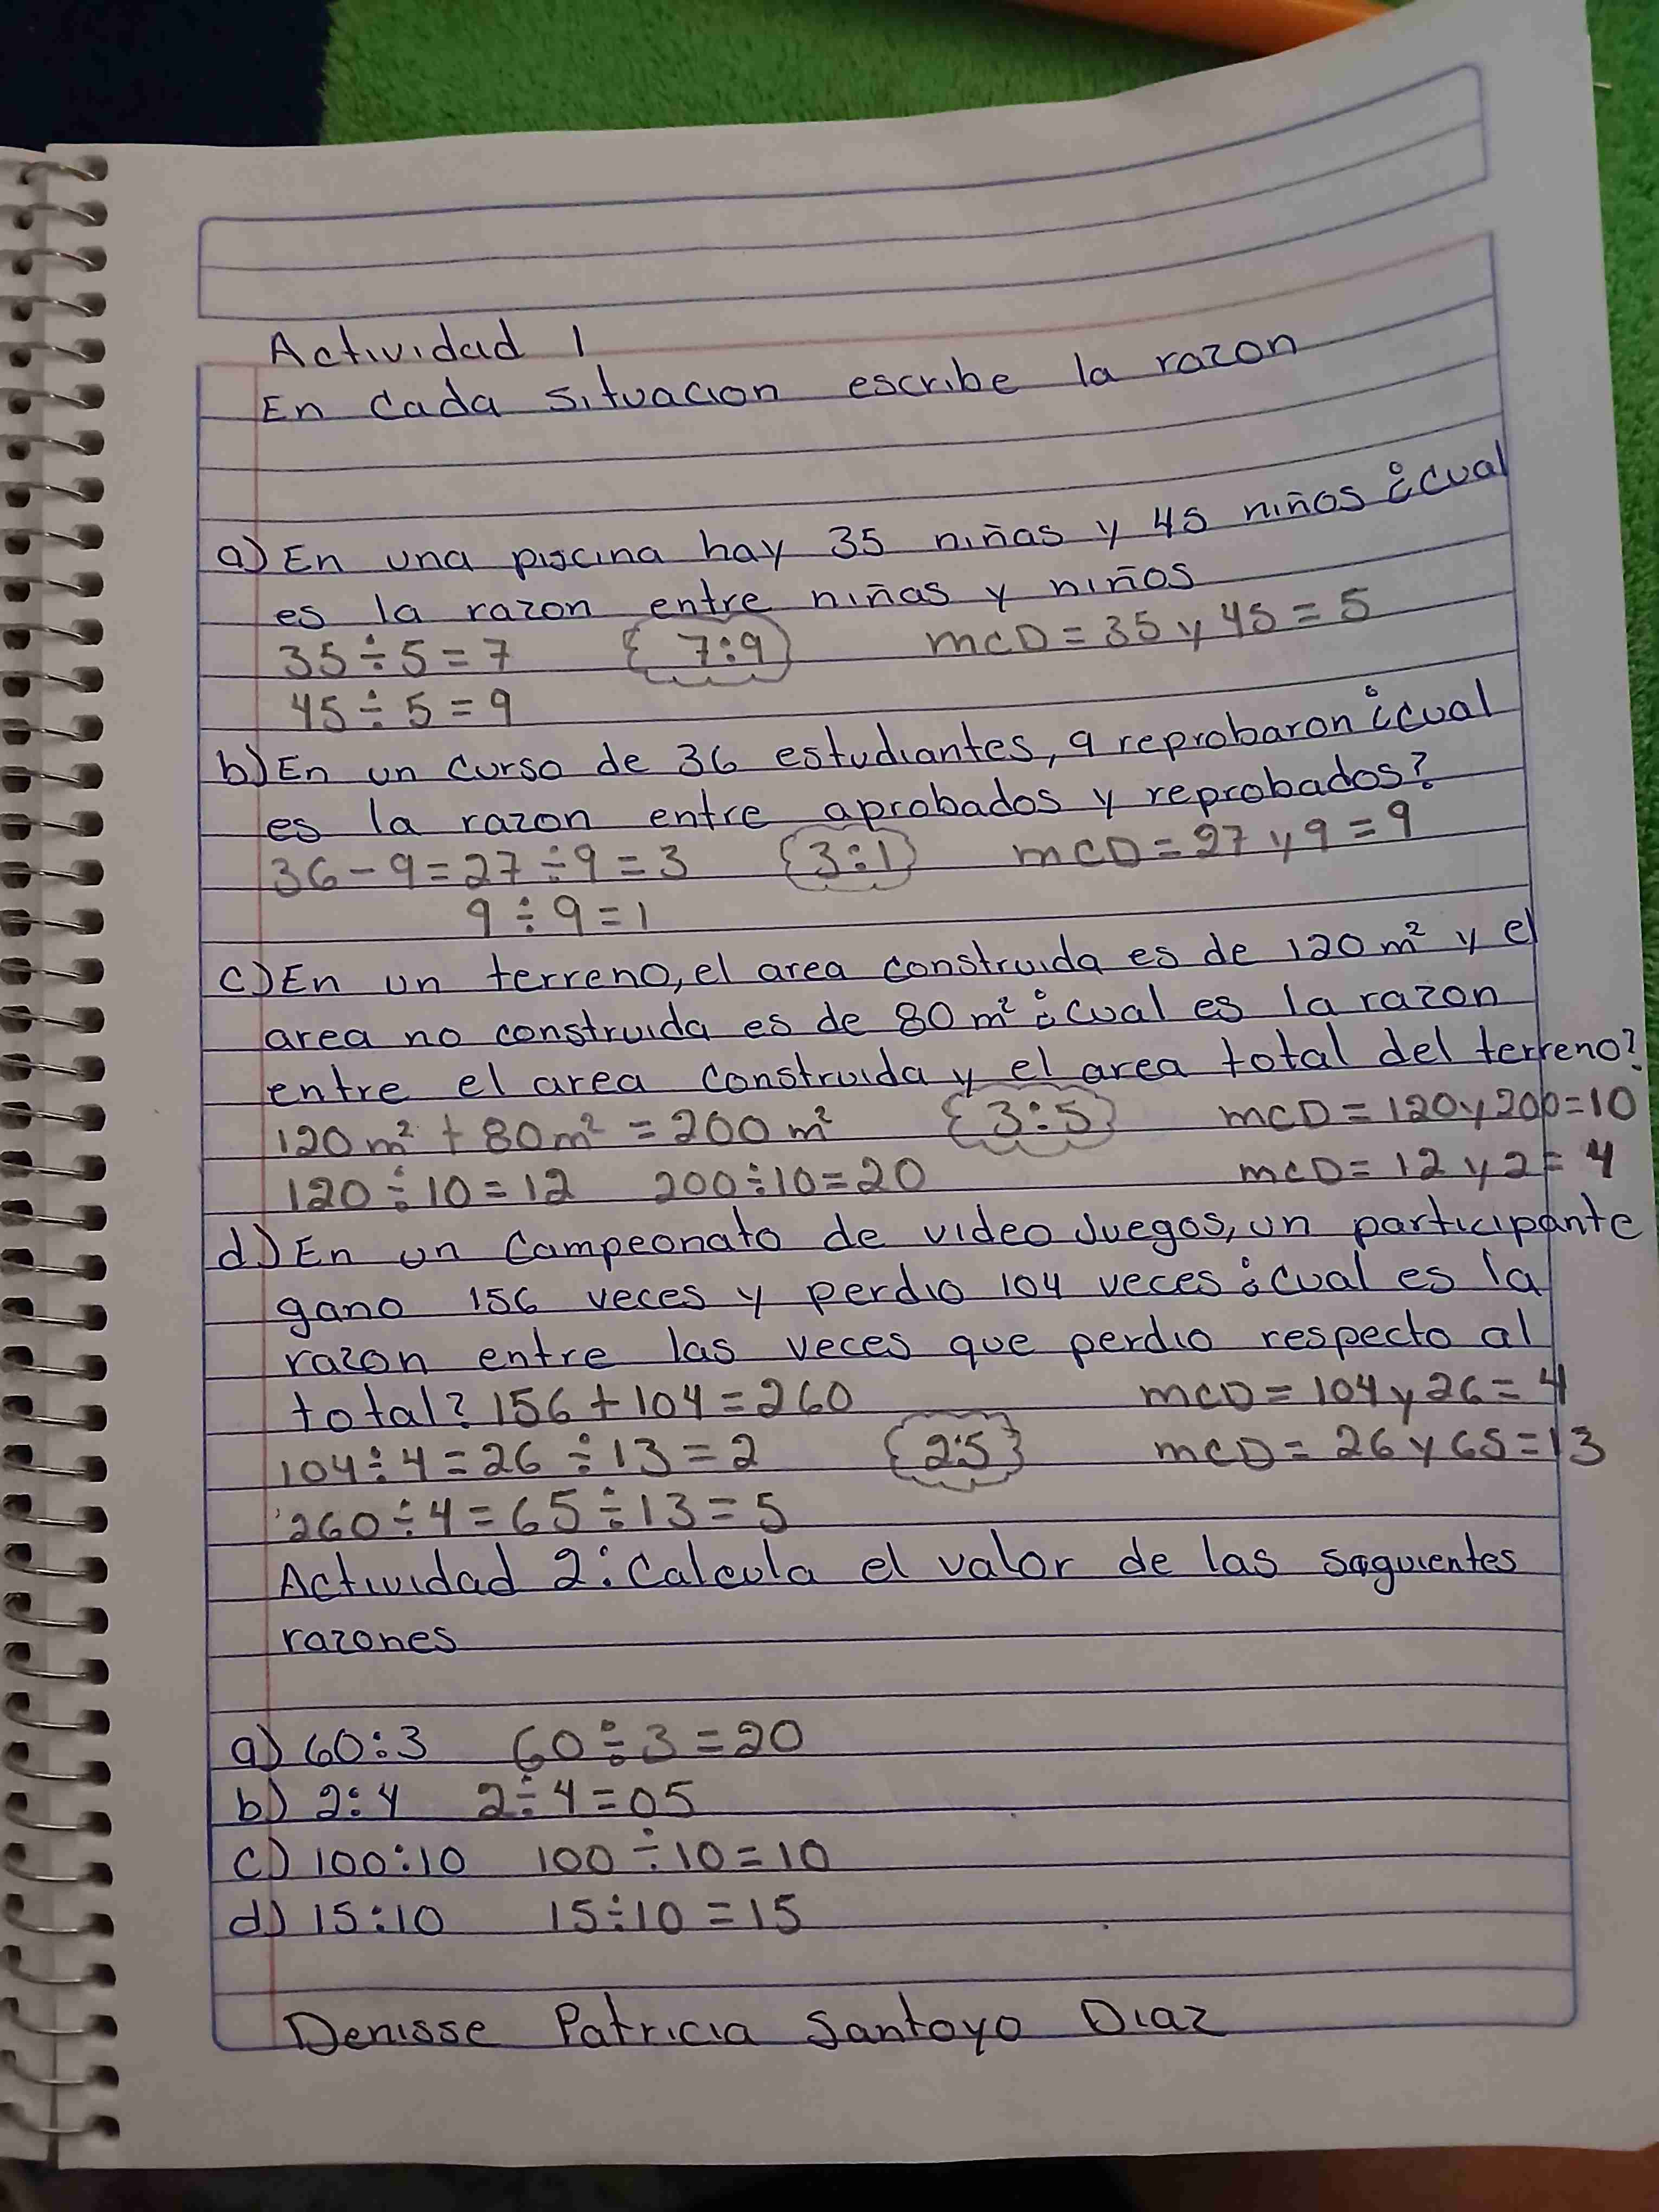 Actividad 1
En cada situacion escribe la razon
a) En una piscina hay 35 niñas y 45 niños ¿cual
es la razon entre niñas y niños
35÷5=7 {7:9} mCD=35 y 45=5
45÷5=9
b) En un curso de 36 estudiantes, 9 reprobaron ¿cual
es la razon entre aprobados y reprobados?
36-9=27÷9=3 {3:1} mCD=27 y 9=9
9÷9=1
c) En un terreno, el area construida es de 120 m² y el
area no construida es de 80 m² ¿cual es la razon
entre el area construida y el area total del terreno?
120 m² + 80 m² = 200 m² {3:5} mCD=120 y 200=10
120÷10=12 200÷10=20 mCD=12 y 2=4
d) En un campeonato de video juegos, un participante
gano 156 veces y perdio 104 veces ¿cual es la
razon entre las veces que perdio respecto al
total? 156+104=260 mCD=104 y 26=4
104÷4=26÷13=2 {2:5} mCD=26 y 65=13
260÷4=65÷13=5
Actividad 2: Calcula el valor de las siguientes
razones
a) 60:3 60÷3=20
b) 2:4 2÷4=05
c) 100:10 100÷10=10
d) 15:10 15÷10=15
Denisse Patricia Santoyo Diaz